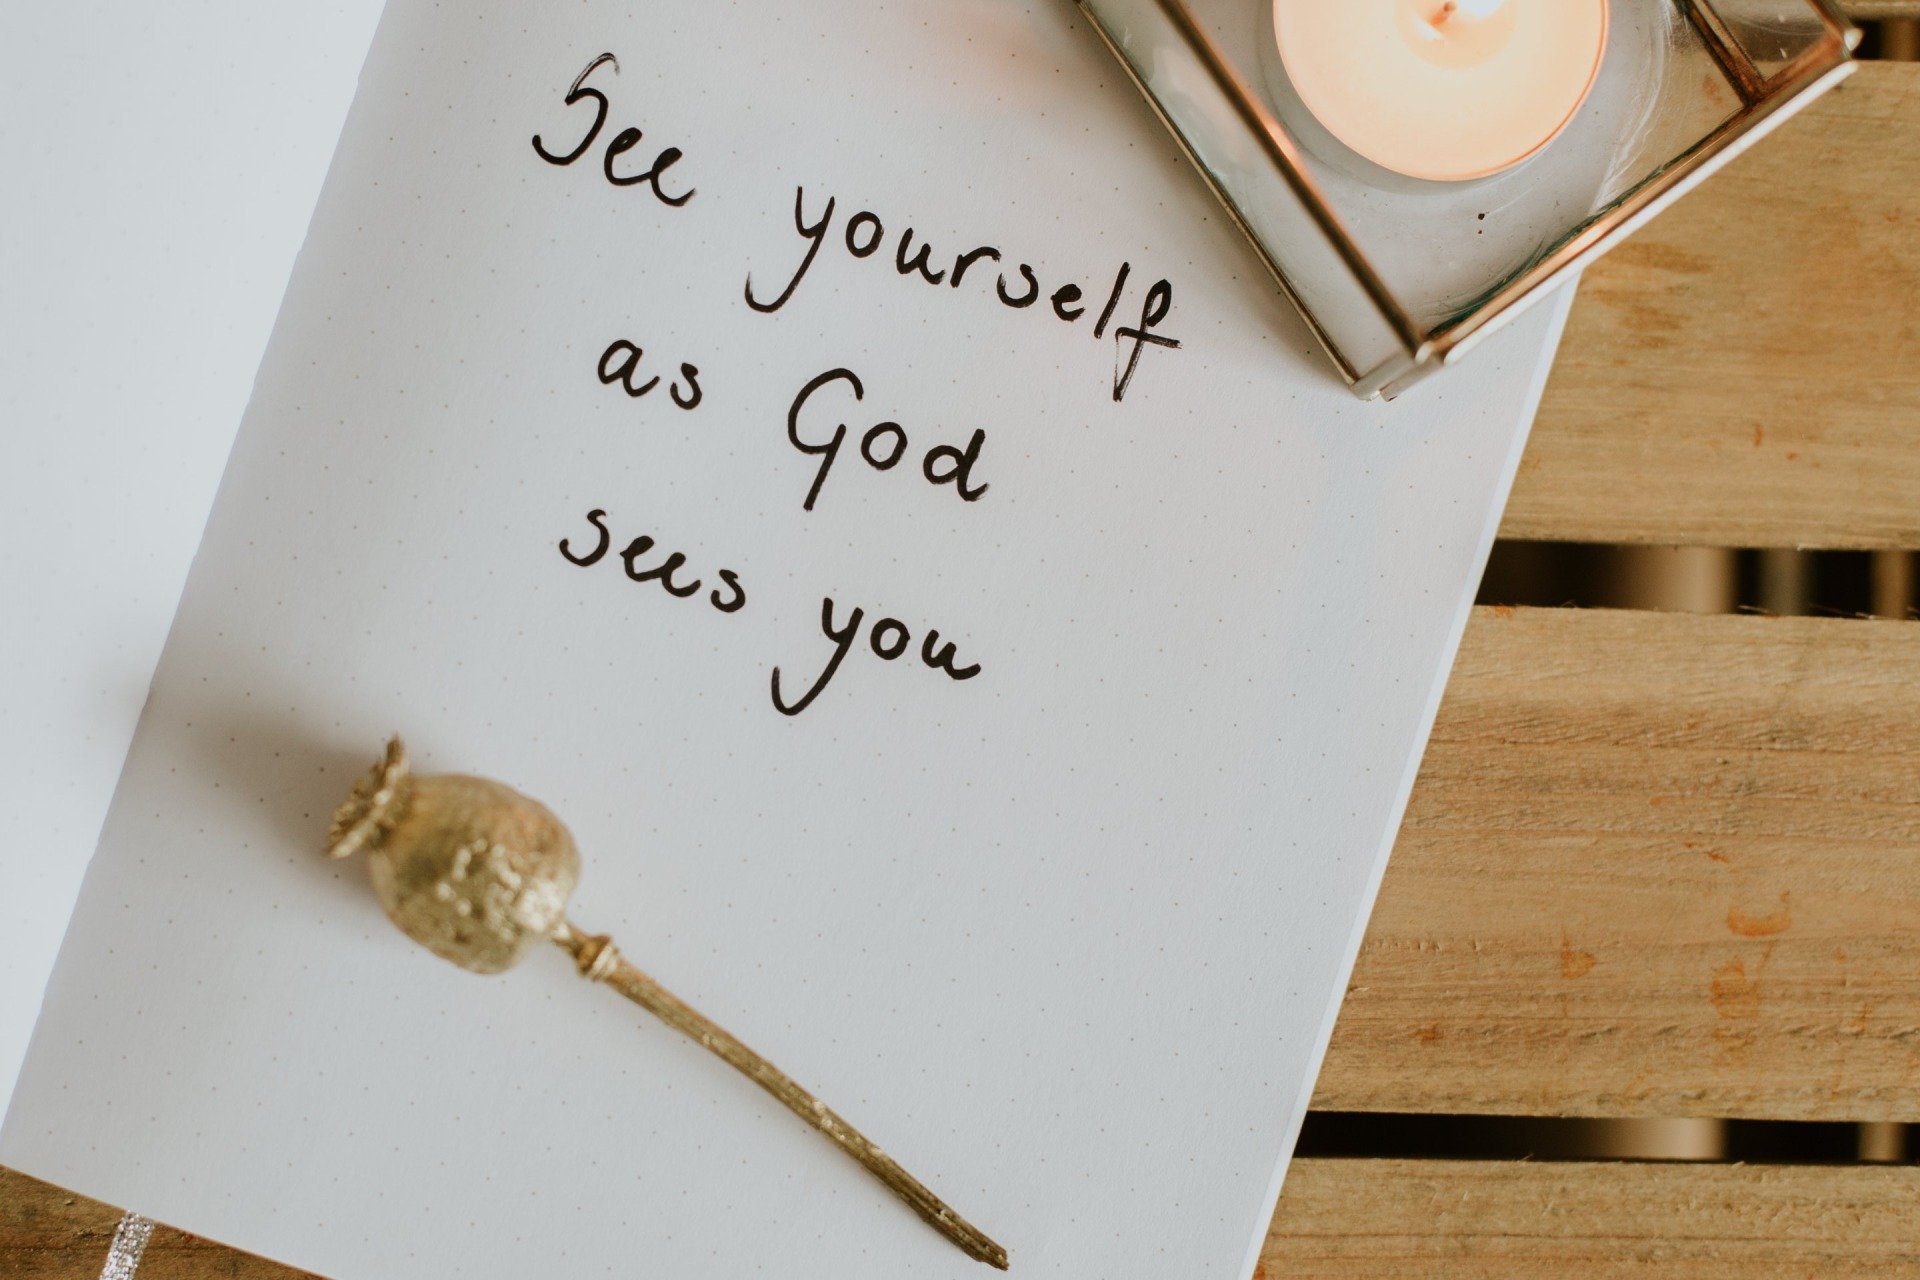 See yourself
as God
sees you